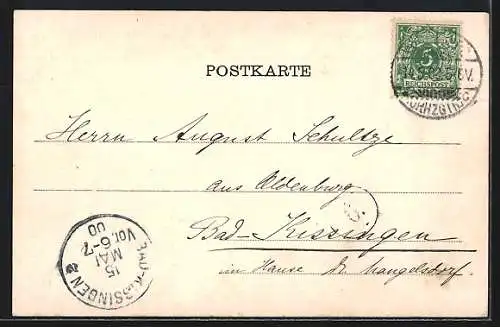 POSTKARTE
5
REICHSPOST
Herrn August Schultze
aus Oldenburg
Bad-Kissingen
im Hause Dr. Mangelsdorf.
BAD-KISSINGEN 2
15
MAI
Vor. 6-7
00